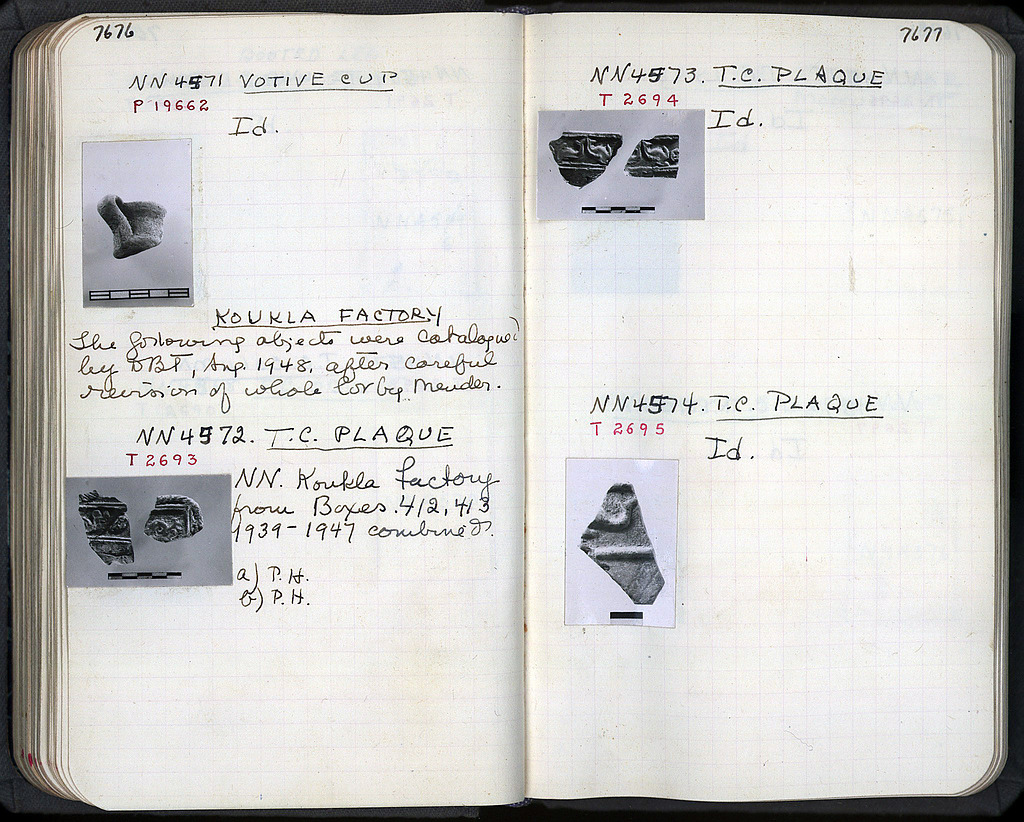 7676
NN 4571 VOTIVE CUP
P 19662
Id.
KOUKLA FACTORY
The following objects were catalogued
by DBT, Aug. 1948, after careful
revision of whole lot by
NN 4572. T.C. PLAQUE
T 2693
NN. Koukla factory
from Boxes. 412, 413
1939-1947 combined.
a) P.H.
b) P.H.
7677
NN 4573. T.C. PLAQUE
T 2694
Id.
NN 4574. T.C. PLAQUE
T 2695
Id.